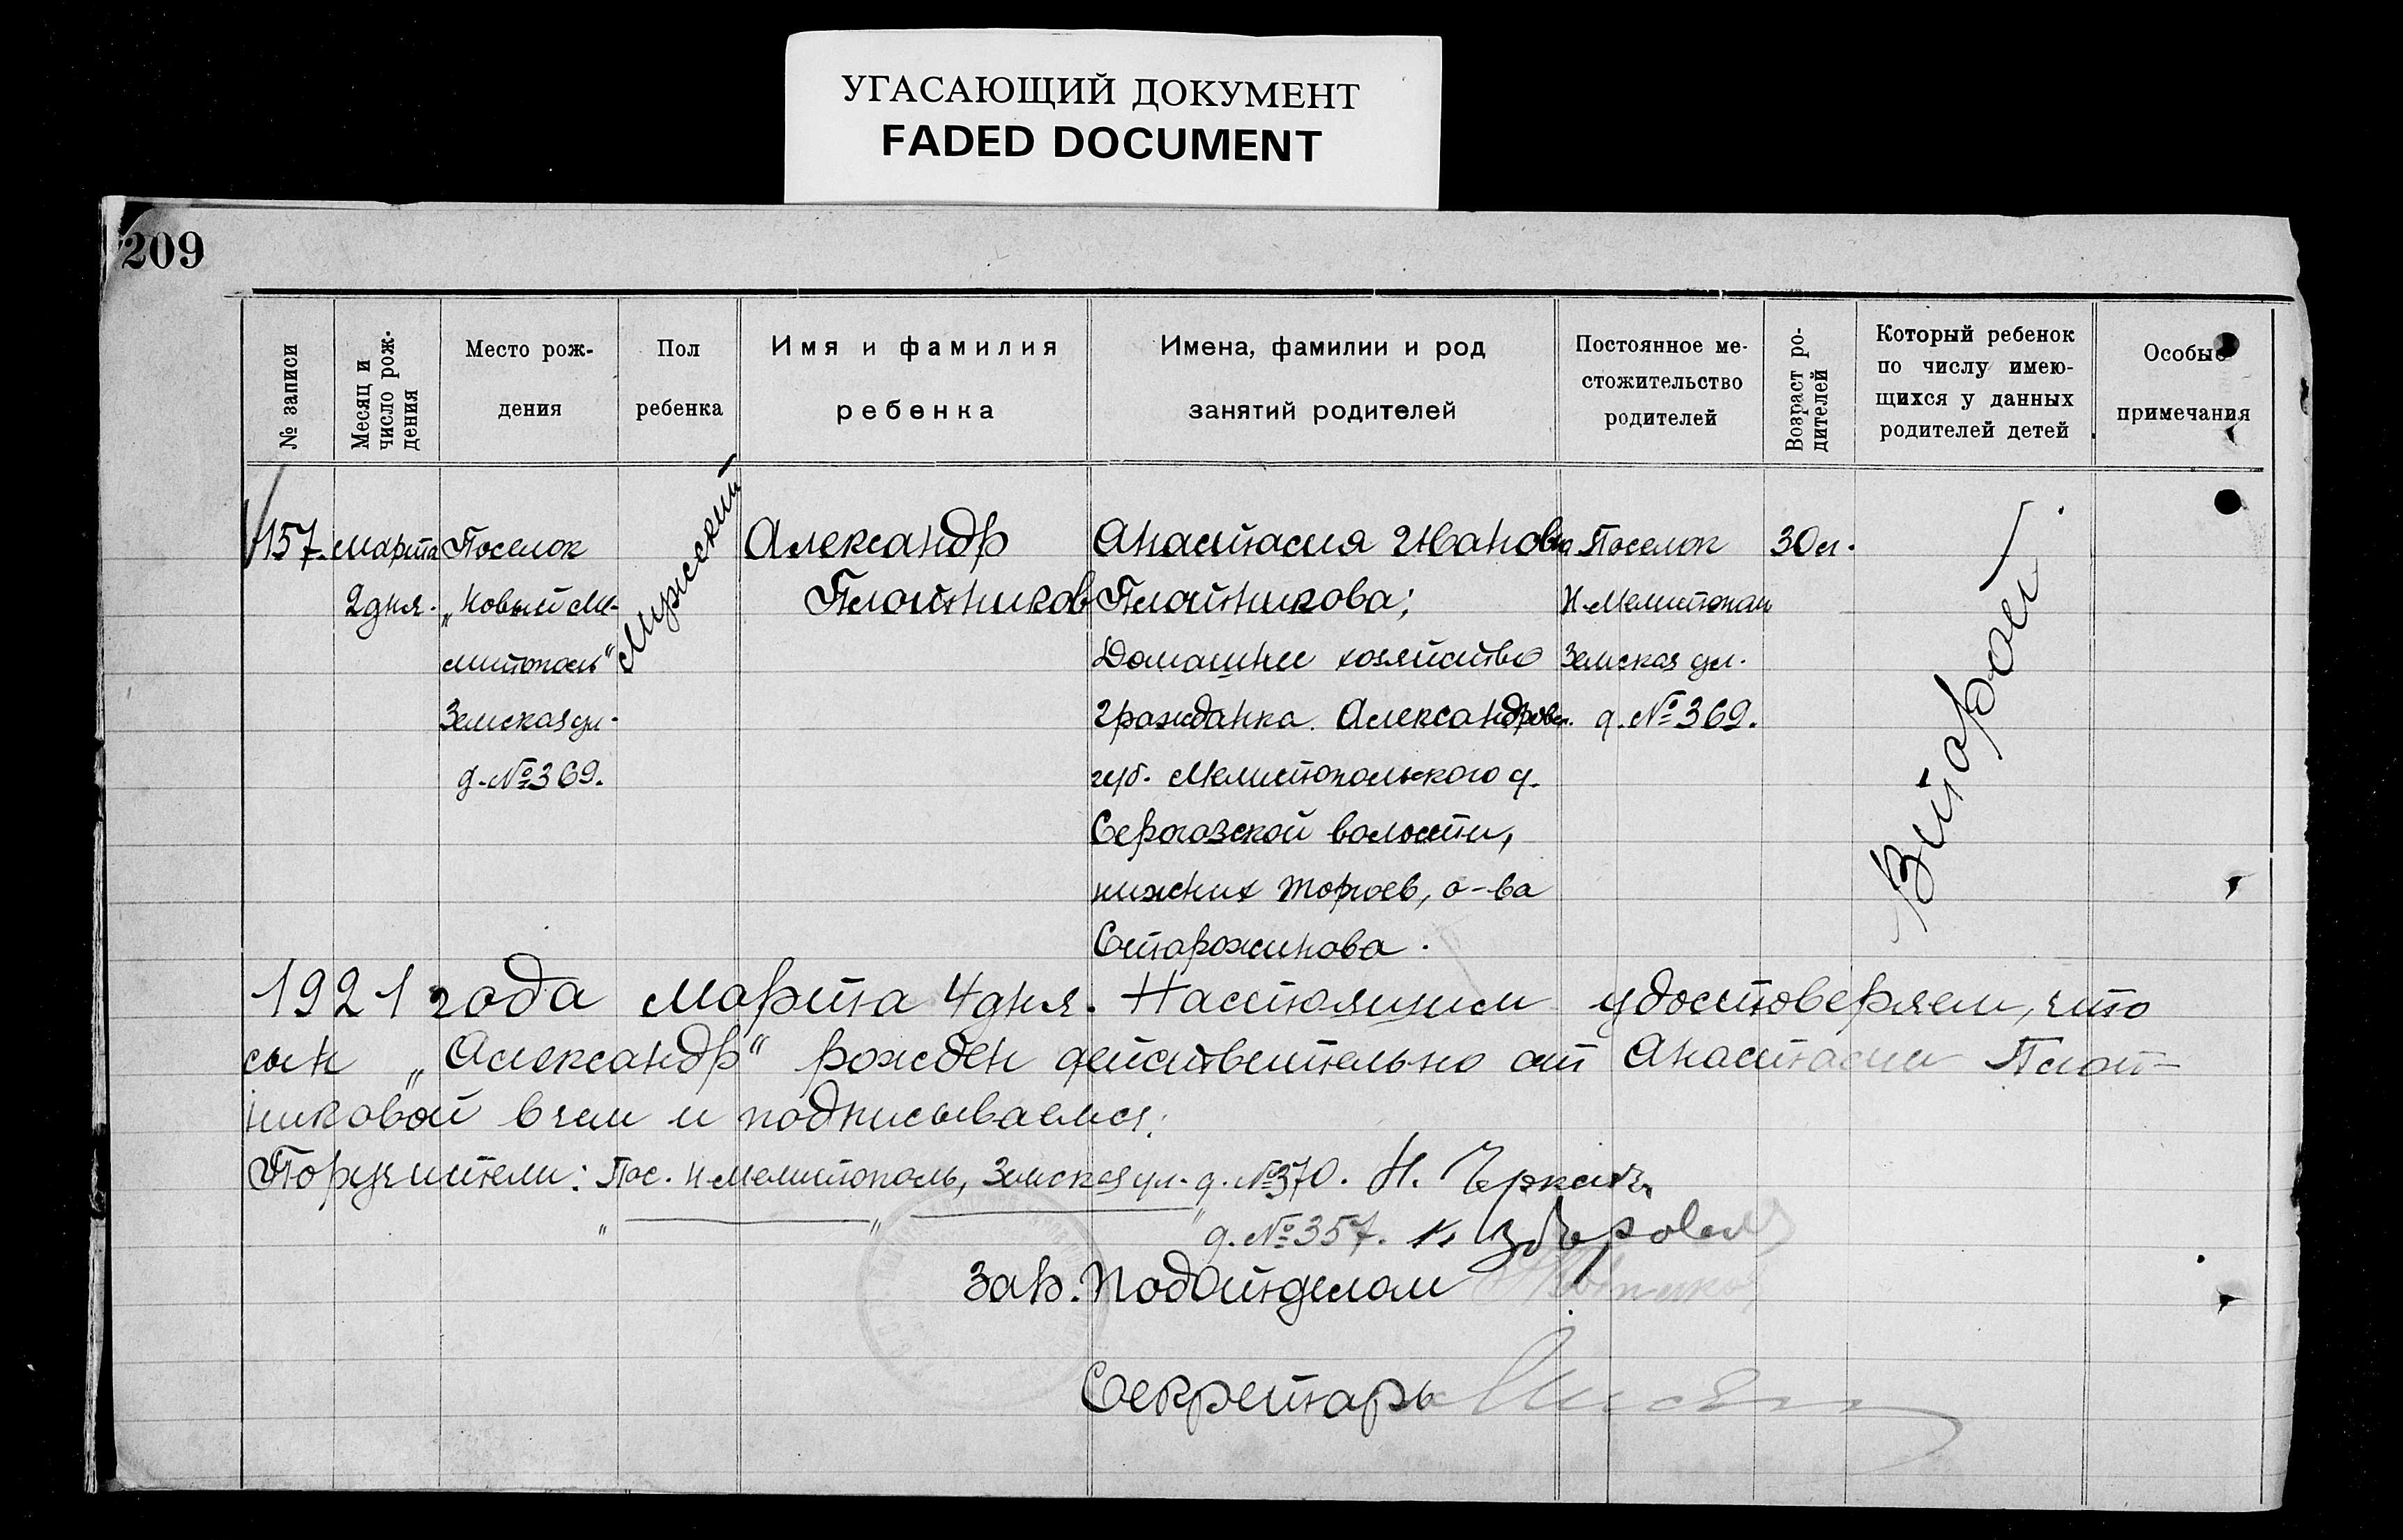 УГАСАЮЩИЙ ДОКУМЕНТ
FADED DOCUMENT
209
№ записи
Месяц и
число рож-
дения
Место рож-
дения
Пол
ребенка
Имя и фамилия
ребенка
Имена, фамилии и род
занятий родителей
Постоянное ме-
стожительство
родителей
Возраст ро-
дителей
Который ребенок
по числу имею-
щихся у данных
родителей детей
Особые
примечания
157.
Марта
2 дня.
Поселок
„Новый Ме-
литополь“
Земская ул.
д. №369.
Мужеский
Александр
Плотников
Анастасия Ивановна
Плотникова;
Домашнее хозяйство
гражданка Александров.
губ. Мелитопольского у.
Серогозской волости,
нижних Торгоев, о-ва
Поселок
Н-Мелитопол
Земская ул.
д. №369.
30 л.
Второй
1921 года Марта 4 дня. Настоящим удостоверяем, что
сын „Александр“ рожден действительно от Анастасии Плот-
никовой в чем и подписываемся:
Поручители: Пос. Н-Мелитополь, Земская ул. д. №370. Н.
„ „ „ д. №357. к
Зав. Подотделом
Секретарь